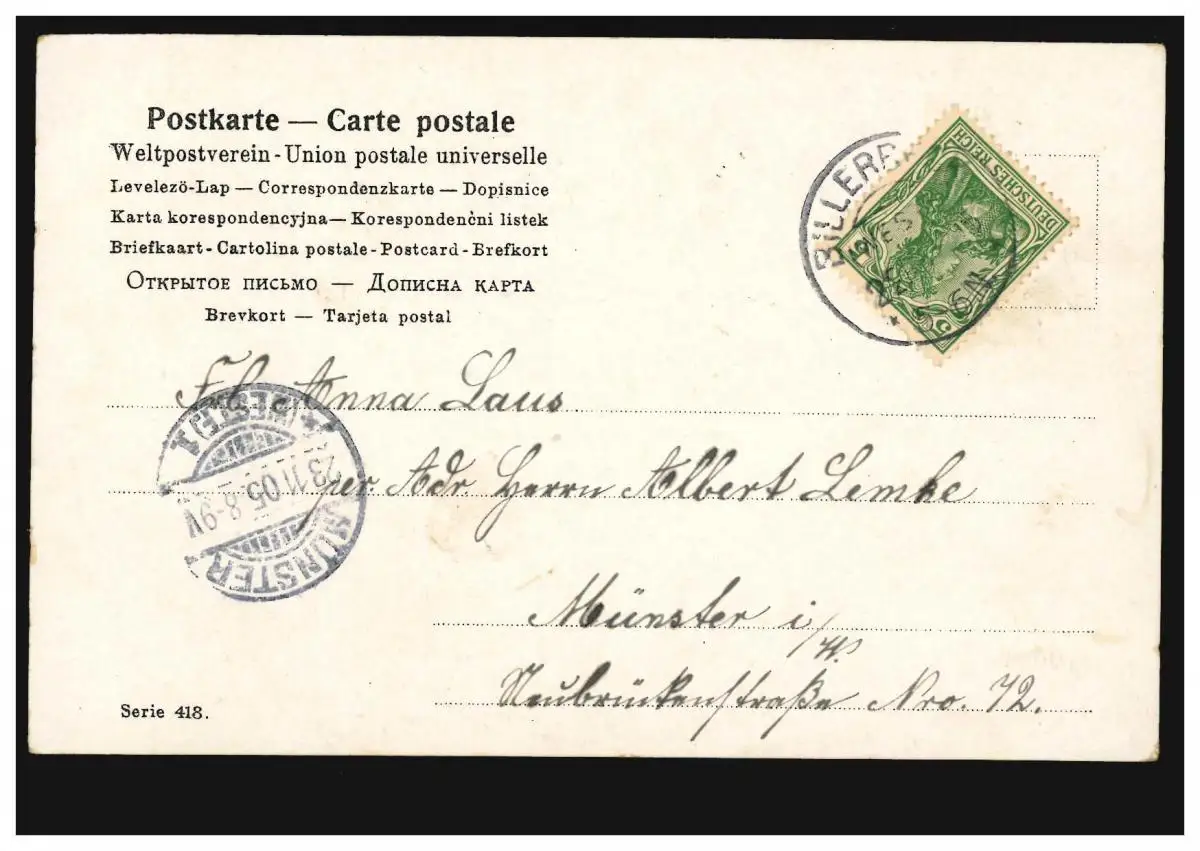 Postkarte — Carte postale
Weltpostverein - Union postale universelle
Levelezö-Lap — Correspondenzkarte — Dopisnice
Karta korespondencyjna — Korespondenčni listek
Briefkaart - Cartolina postale - Postcard - Brefkort
Открытое письмо — Дописна карта
Brevkort — Tarjeta postal
DEUTSCHES REICH
5
Frl. Anna Laus
per Adr. Herrn Albert Lemke
MÜNSTER
23.11.05.8-9V
(WESTF.) 1
Münster i/W.
Neubrückenstraße Nro. 72.
Serie 418.